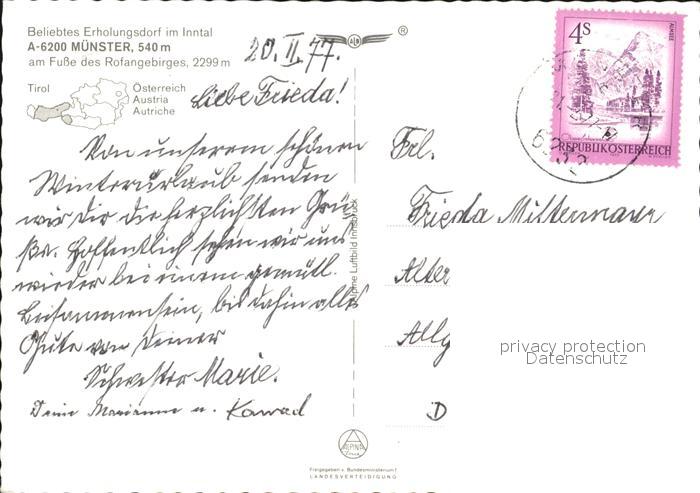 Beliebtes Erholungsdorf im Inntal
A-6200 MÜNSTER, 540 m
am Fuße des Rofangebirges, 2299 m
Tirol
Österreich
Austria
Autriche
®
20. II. 77.
Liebe Frieda!
Von unserem schönen
Winterurlaub senden
wir Dir die herzlichsten Grü
ße. Hoffentlich sehen wir uns
wieder bei einem gemütl.
Beisammensein, bis dahin alles
Gute von Deiner
Schwester Marie.
Deine Marianne u. Konrad
Alpine Luftbild Innsbruck
4S
REPUBLIK ÖSTERREICH
6232
Frl.
Frieda Mittermaier
Alter
Allg
D
privacy protection
Datenschutz
ALPINE
Freigegeben v. Bundesministerium f.
LANDESVERTEIDIGUNG